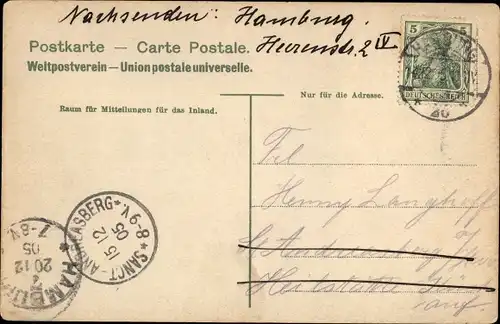 Nachsenden: Hamburg.
Postkarte — Carte Postale. Heerenstr. 2 IV
Weltpostverein – Union postale universelle.
5 5
DEUTSCHES REICH
* 20
Nur für die Adresse.
Raum für Mitteilungen für das Inland.
Frl
Henny Langhoff
St Andreasberg
Heilstätte
SANCT-ANDREASBERG * 8-9 V. *
15 12
05
HAMBURG
20.12
05
7-8 V.